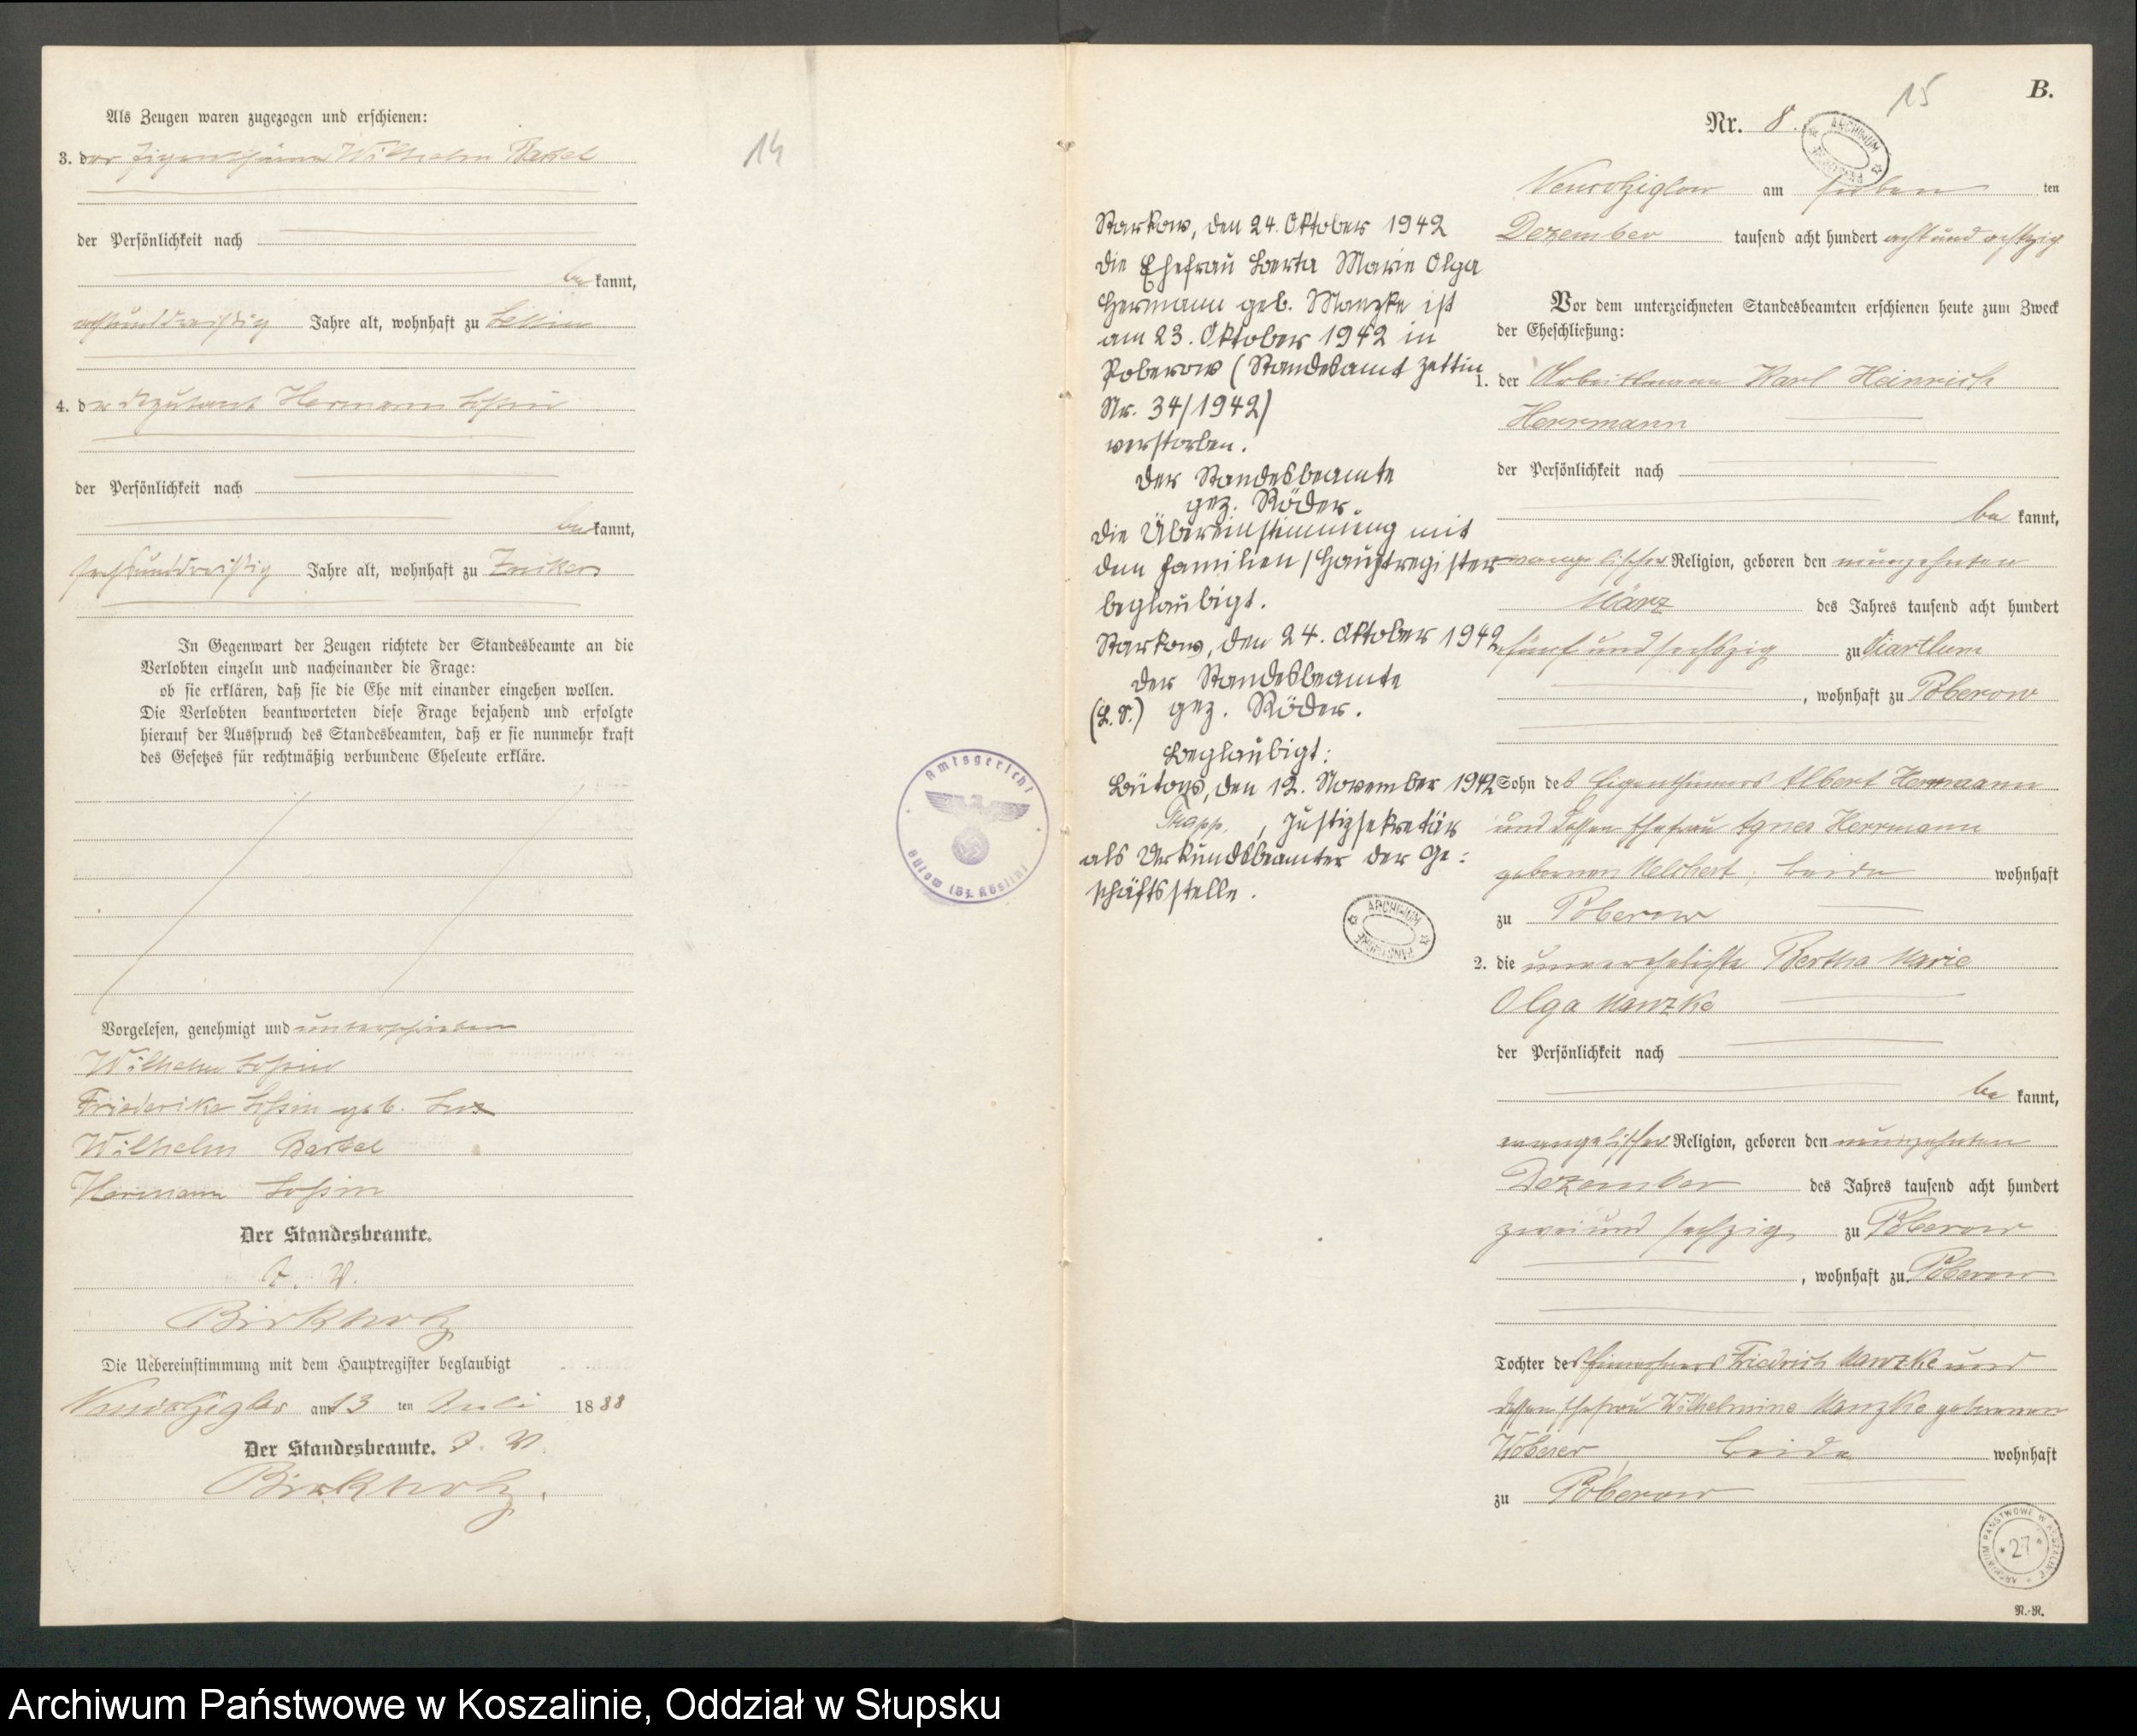 Als Zeugen waren zugezogen und erschienen:
3. der Eigenthümer Wilhelm Bartel
14
der Persönlichkeit nach
be kannt,
achtunddreißig Jahre alt, wohnhaft zu
4. der Hermann Loßin
der Persönlichkeit nach
be kannt,
sechsunddreißig Jahre alt, wohnhaft zu
In Gegenwart der Zeugen richtete der Standesbeamte an die
Verlobten einzeln und nacheinander die Frage:
ob sie erklären, daß sie die Ehe mit einander eingehen wollen.
Die Verlobten beantworteten diese Frage bejahend und erfolgte
hierauf der Ausspruch des Standesbeamten, daß er sie nunmehr kraft
des Gesetzes für rechtmäßig verbundene Eheleute erkläre.
Vorgelesen, genehmigt und unterschrieben
Wilhelm Loßin
Friederike Loßin geb.
Wilhelm Bartel
Hermann Loßin
Der Standesbeamte.
J. V.
Birkholz
Die Uebereinstimmung mit dem Hauptregister beglaubigt
am 13 ten Juli 1888
Der Standesbeamte. J. V.
Birkholz.
Amtsgericht
Bütow (Bz. Köslin)
Starkow, den 24. Oktober 1942
die Ehefrau Berta Marie Olga
Hermann geb. Manzke ist
am 23. Oktober 1942 in
Poberow (Standesamt Zettin
Nr. 34/1942)
verstorben.
Der Standesbeamte
gez. Röder.
Die Übereinstimmung mit
dem Familien/Hauptregister
beglaubigt.
Starkow, den 24. Oktober 1942
Der Standesbeamte
(L. S.) gez. Röder.
Beglaubigt:
Bütow, den 12. November 1942
, Justizsekretär
als Urkundsbeamter der Ge=
schäftsstelle.
ARCHIWUM PAŃSTWOWE
15
B.
Nr. 8.
ARCHIWUM PAŃSTWOWE
am sieben ten
Dezember tausend acht hundert acht und achtzig
Vor dem unterzeichneten Standesbeamten erschienen heute zum Zweck
der Eheschließung:
1. der Arbeitsmann Karl Heinrich
Herrmann
der Persönlichkeit nach
be kannt,
evangelischer Religion, geboren den neunzehnten
März des Jahres tausend acht hundert
fünf und sechszig zu Viartlum
, wohnhaft zu Poberow
Sohn des Eigenthümers Albert Herrmann
und dessen Ehefrau Agnes Herrmann
geborenen Melchert, beide wohnhaft
zu Poberow
2. die unverehelichte Bertha Marie
Olga Manzke
der Persönlichkeit nach
be kannt,
evangelischer Religion, geboren den neunzehnten
Dezember des Jahres tausend acht hundert
zwei und sechzig zu Poberow
, wohnhaft zu Poberow
Tochter des Friedrich Manzke und
dessen Ehefrau Wilhelmine Manzke geborenen
beide wohnhaft
zu Poberow
ARCHIWUM PAŃSTWOWE W KOSZALINIE
* 27 *
N.-R.
Archiwum Państwowe w Koszalinie, Oddział w Słupsku